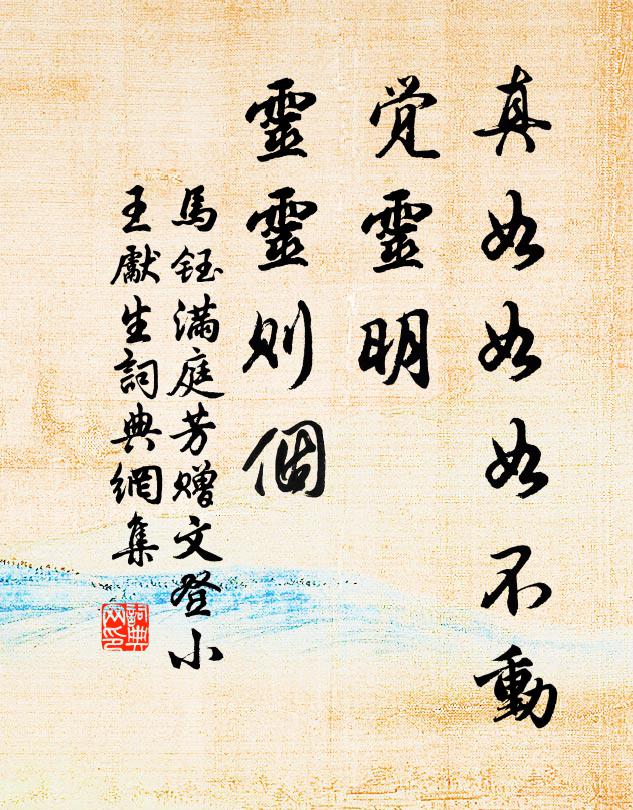 真如如如不動
覚靈明
靈靈則個
馬鈺满庭芳赠文登小
王獻生詞典網集
詞典
网印